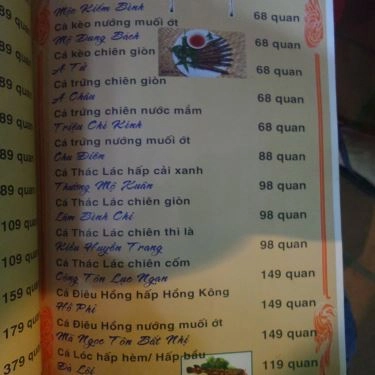 Mộc Kiếm Bình
Cá kèo nướng muối ớt 68 quan
Mộ Dung Bách
Cá kèo chiên giòn 68 quan
A Tử
Cá trứng chiên giòn 68 quan
A Châu
Cá trứng chiên nước mắm 68 quan
Triệu Chí Kính
Cá trứng nướng muối ớt 68 quan
Chu Điên
Cá Thác Lác hấp cải xanh 88 quan
Thường Mộ Xuân
Cá Thác Lác chiên giòn 98 quan
Lâm Bình Chi
Cá Thác Lác chiên thì là 98 quan
Kiều Huyền Trang
Cá Thác Lác chiên cốm 98 quan
Công Tôn Lục Ngạn
Cá Điêu Hồng hấp Hồng Kông 149 quan
Hồ Phỉ
Cá Điêu Hồng nướng muối ớt 149 quan
Mã Ngọc Tôn Bất Nhị
Cá Lóc hấp hèm/ Hấp bầu 149 quan
Đà Lôi 119 quan
89 quan
89 quan
89 quan
89 quan
109 quan
109 quan
159 quan
179 quan
379 quan